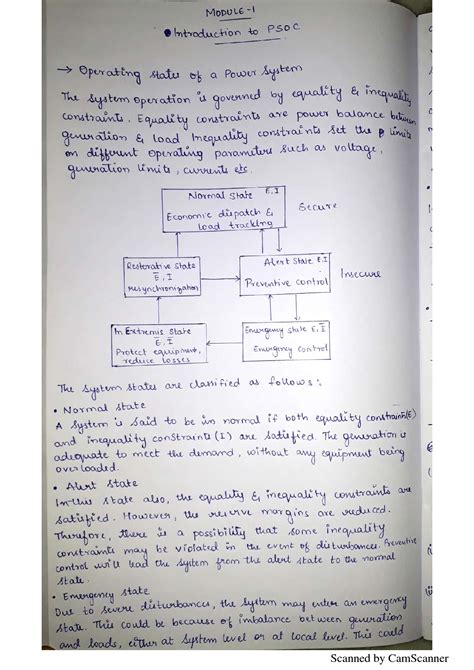 MODULE-1
• Introduction to PSOC
→ Operating states of a Power System
The system operation is governed by equality & inequality
constraints. Equality constraints are power balance between
generation & load Inequality constraints set the limits
on different operating parameters such as voltage,
generation limits, currents etc.
Normal State E, I
Economic dispatch &
load tracking
Secure
Restorative State
E̅, I
resynchronization
Alert State E, I
Preventive control
Insecure
In Extremis State
E̅, I̅
Protect equipment,
reduce losses
Emergency state E, I̅
Emergency control
The system states are classified as follows:
• Normal state
A system is said to be in normal if both equality constraints(E)
and inequality constraints (I) are satisfied. The generation is
adequate to meet the demand, without any equipment being
overloaded.
• Alert State
In this state also, the equality & inequality constraints are
satisfied. However, the reserve margins are reduced.
Therefore, there is a possibility that some inequality
constraints may be violated in the event of disturbances. Preventive
control will lead the system from the alert state to the normal
state.
• Emergency state
Due to severe disturbances, the system may enter an emergency
state. This could be because of imbalance between generation
and loads, either at system level or at local level. This could
Scanned by CamScanner